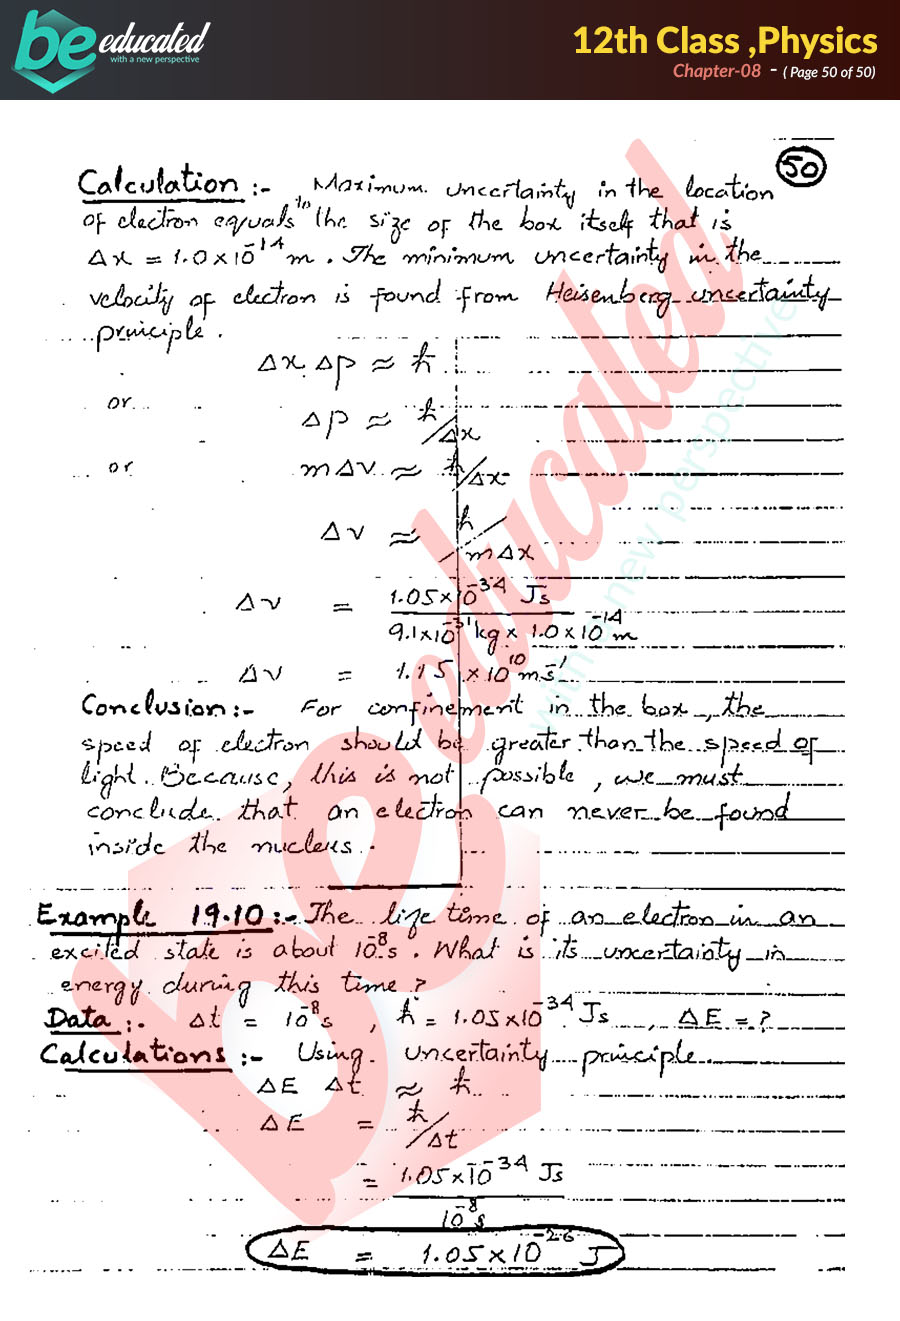 be educated
with a new perspective
12th Class ,Physics
Chapter-08 - ( Page 50 of 50)
50
Calculation :- Maximum uncertainty in the location
of electron equals to the size of the box itself that is
Δx = 1.0×10⁻¹⁴ m. The minimum uncertainty in the
velocity of electron is found from Heisenberg uncertainty
principle.
Δx Δp ≈ ħ
or Δp ≈ ħ/Δx
or mΔv ≈ ħ/Δx
Δv ≈ ħ/mΔx
Δv = 1.05×10⁻³⁴ Js / 9.1×10⁻³¹ kg × 1.0×10⁻¹⁴ m
Δv = 1.15 ×10¹⁰ ms⁻¹
Conclusion:- For confinement in the box, the
speed of electron should be greater than the speed of
light. Because, this is not possible, we must
conclude that an electron can never be found
inside the nucleus.
Example 19.10:- The life time of an electron in an
excited state is about 10⁻⁸s. What is its uncertainty in
energy during this time?
Data:- Δt = 10⁻⁸s , ħ = 1.05×10⁻³⁴ Js , ΔE = ?
Calculations:- Using uncertainty principle
ΔE Δt ≈ ħ
ΔE = ħ/Δt
= 1.05×10⁻³⁴ Js
10⁻⁸s
ΔE = 1.05×10⁻²⁶ J
be educated
with a new perspective